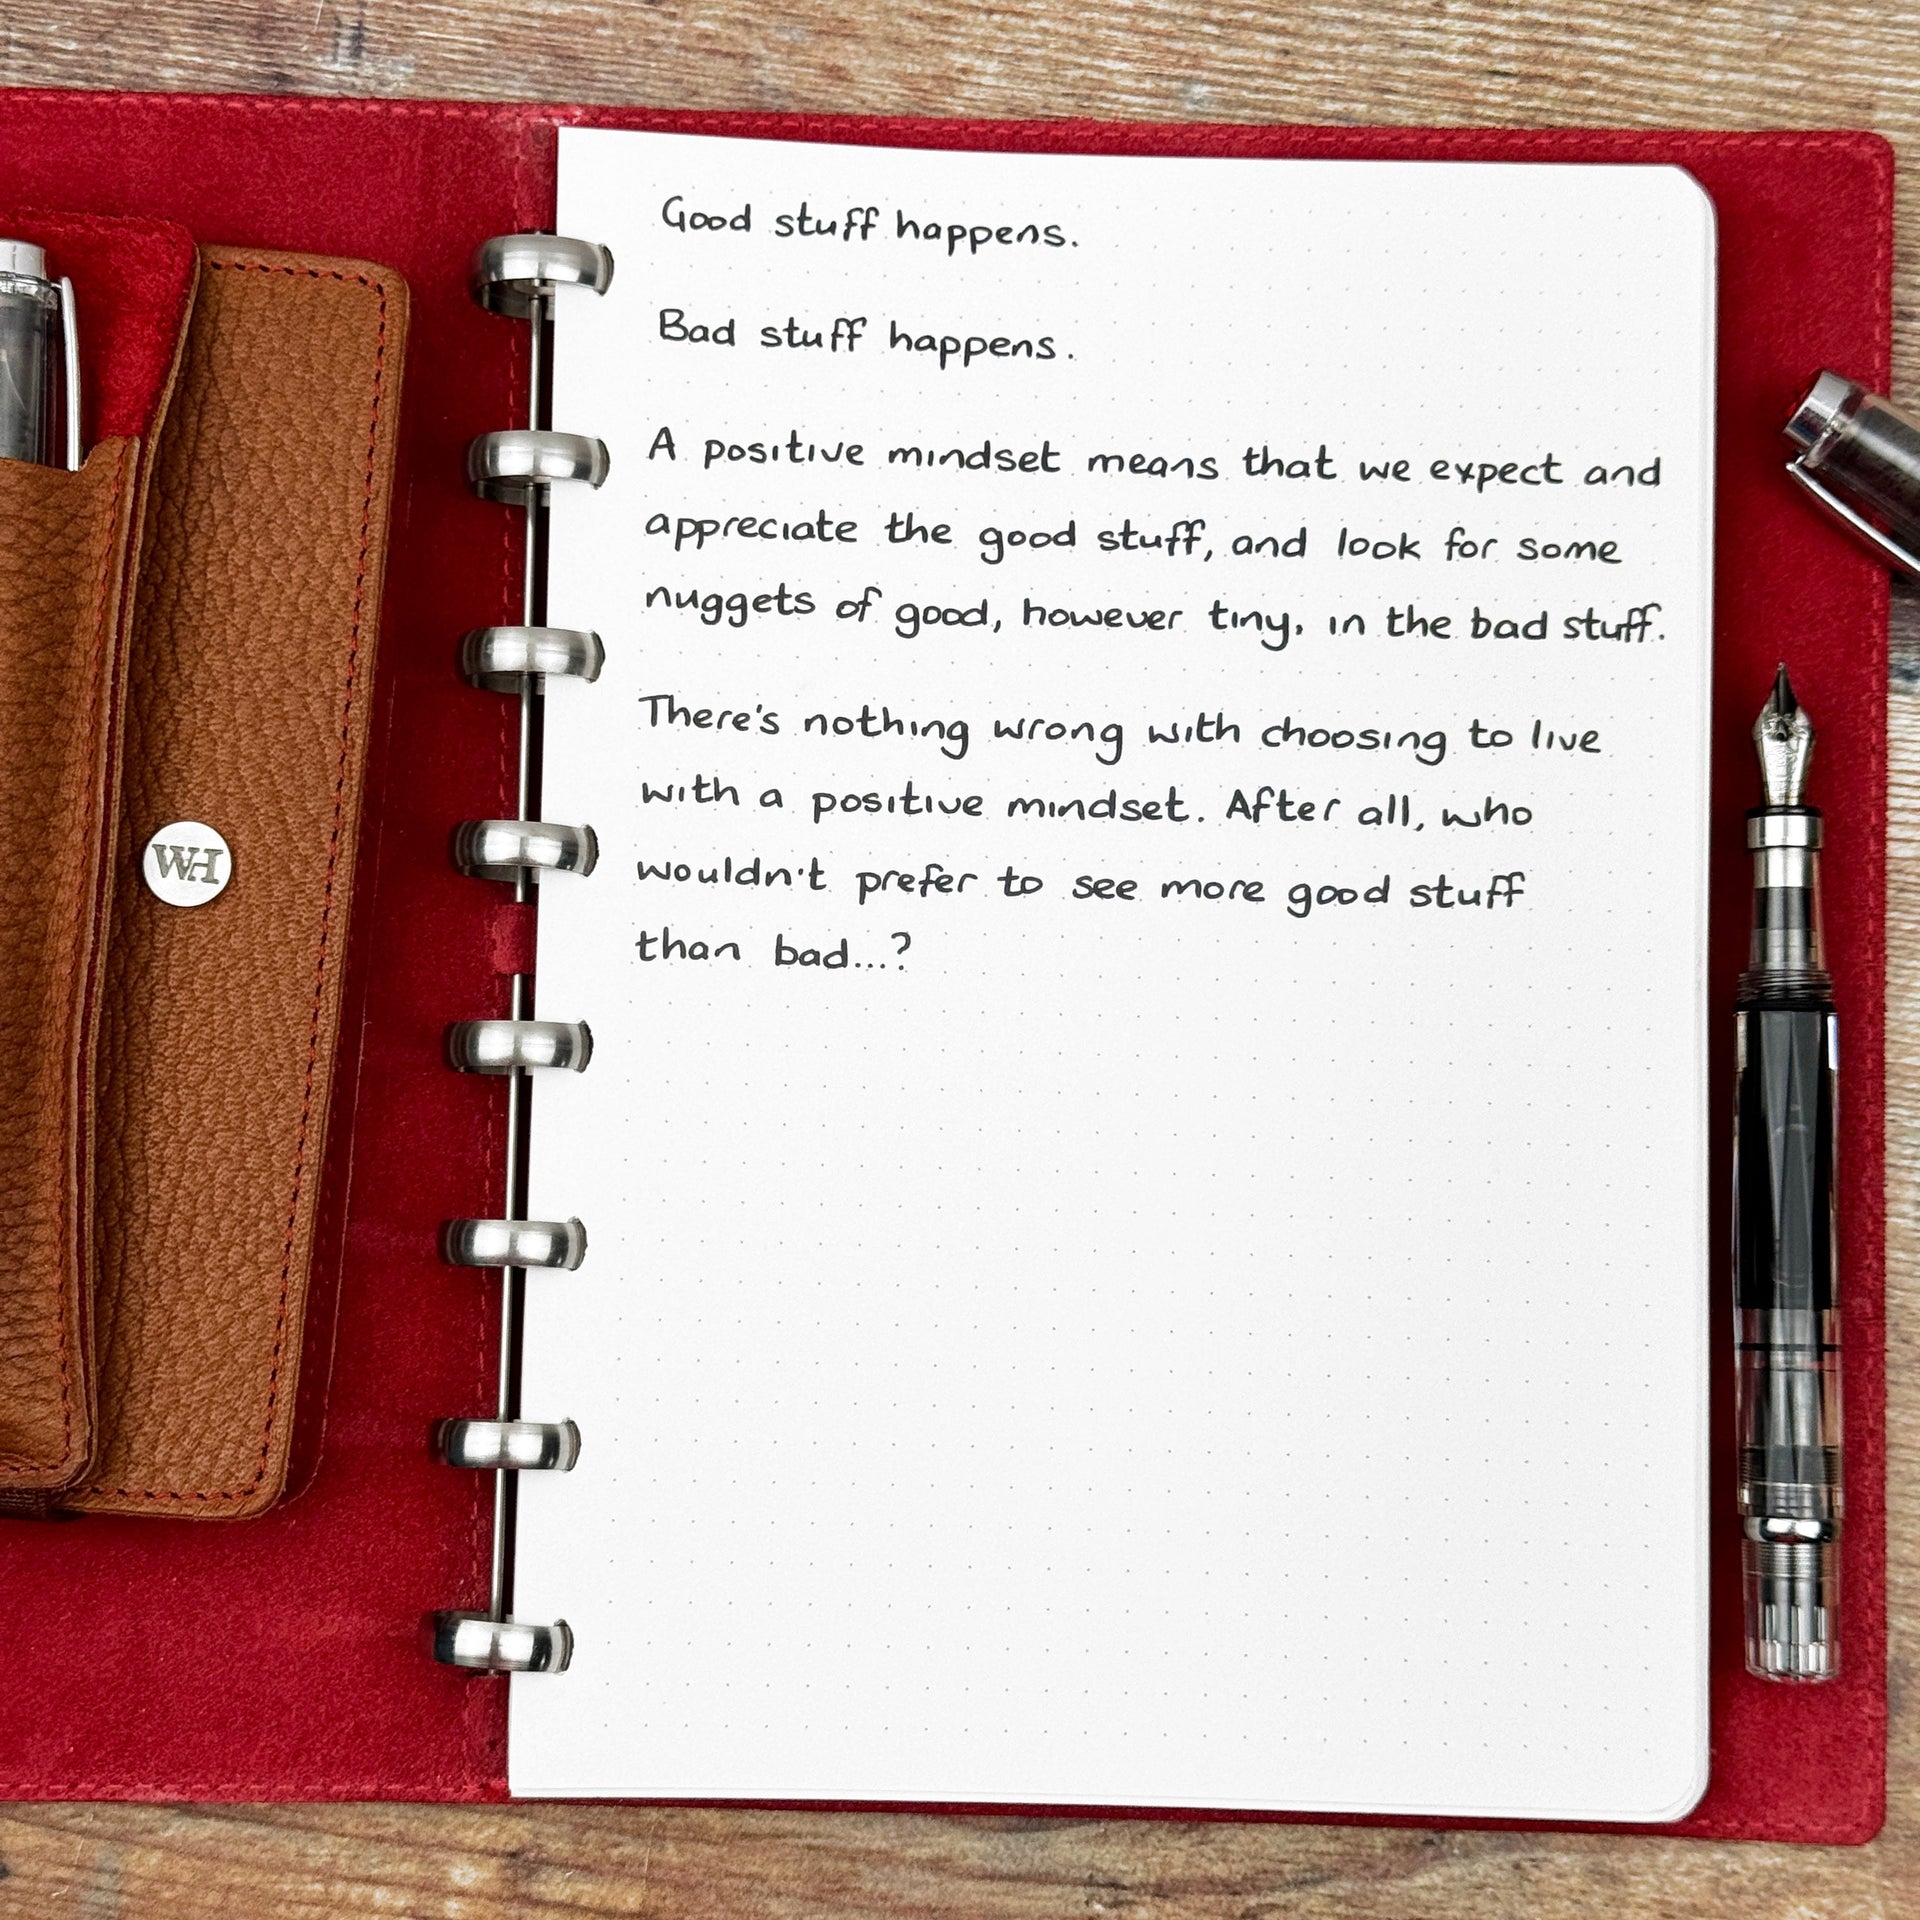 Good stuff happens.
Bad stuff happens.
A positive mindset means that we expect and
appreciate the good stuff, and look for some
nuggets of good, however tiny, in the bad stuff.
There's nothing wrong with choosing to live
with a positive mindset. After all, who
wouldn't prefer to see more good stuff
than bad...?
WH